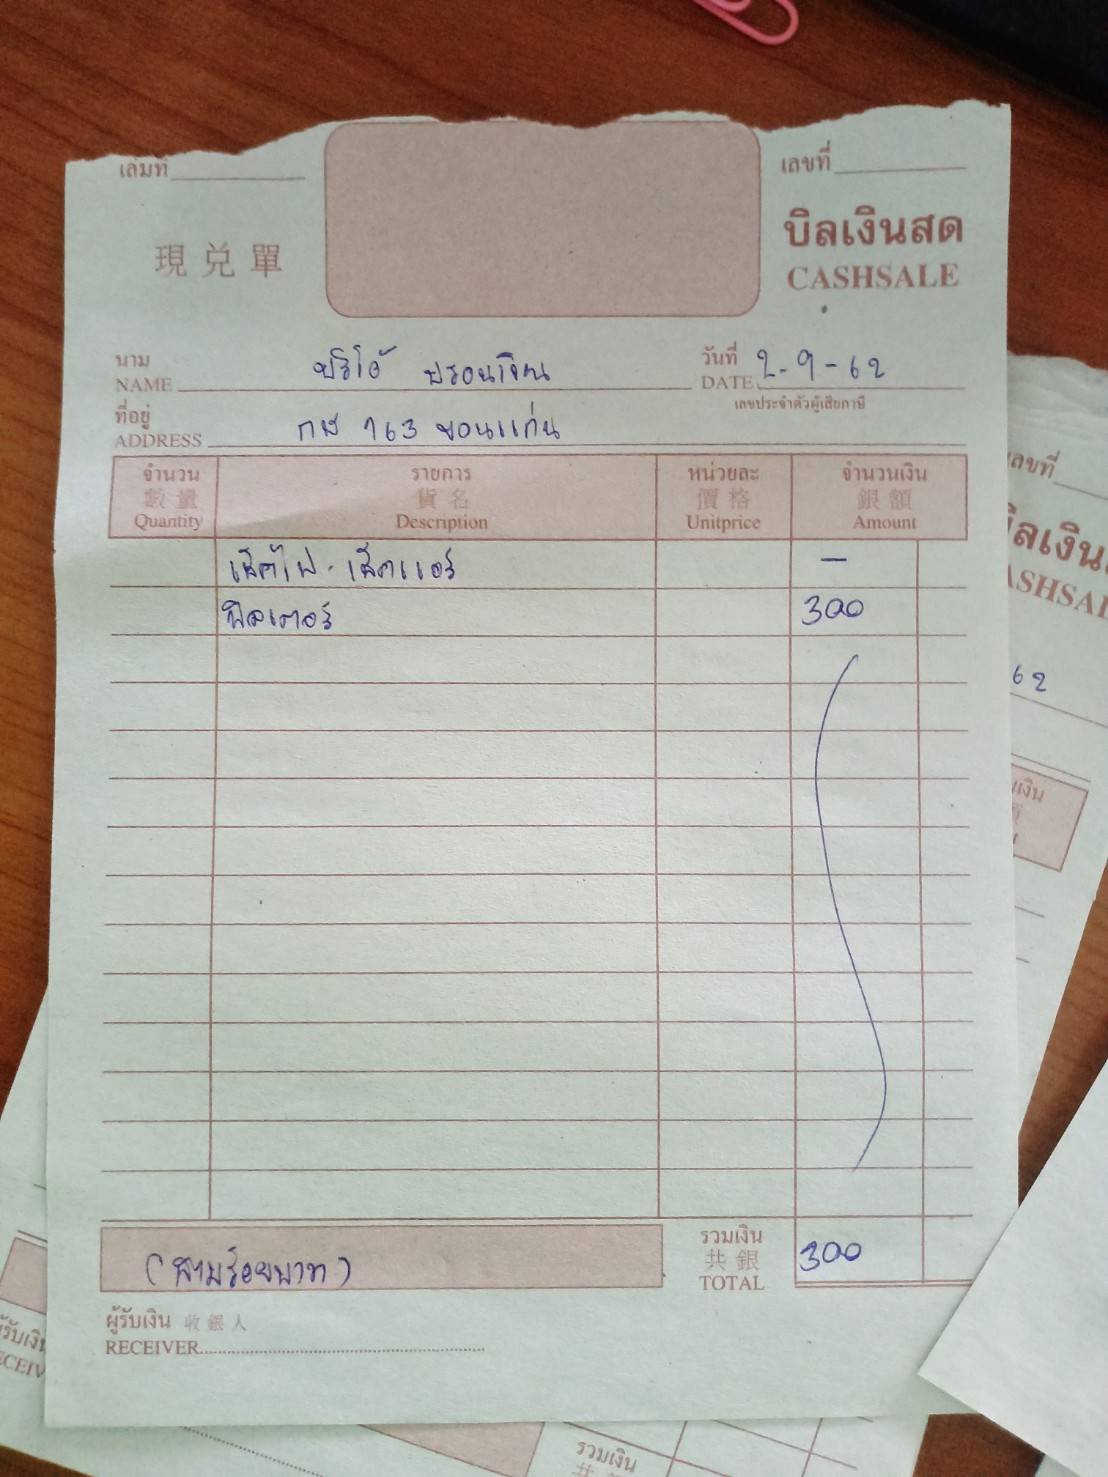 เล่มที่
เลขที่
現兑單
บิลเงินสด
CASHSALE
นาม
NAME
วันที่ 2-9-62
DATE
เลขประจำตัวผู้เสียภาษี
ที่อยู่ กษ 763 ขอนแก่น
ADDRESS
จำนวน รายการ หน่วยละ จำนวนเงิน
數量 貨名 價格 銀額
Quantity Description Unitprice Amount
เช็คไฟ - เช็คแอร์ —
ฟิลเตอร์ 300
(สามร้อยบาท)
รวมเงิน
共銀
TOTAL 300
ผู้รับเงิน 收銀人
RECEIVER
ลขที่
ลเงิน
ASHSAL
62
เงิน
รับเงิน
ECEIV
รวมเงิน
共